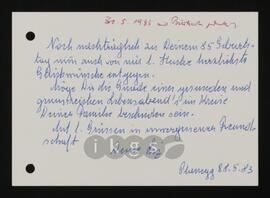 30.5.1983
Noch nachträglich zu Deinem 85 Geburts-
tag nim auch von mir l. Hucke herzlichste
Glückwünsche entgegen.
Möge Dir die Gnade eines gesunden und
Lebensabend's im Kreise
Deiner Familie beschieden sein.
Mit l. Grüssen in unvergessener Freund-
schaft
Deine
ikgs
28.5.83